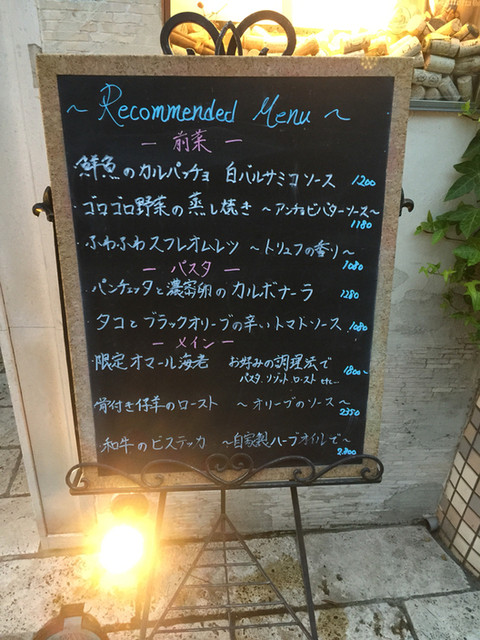 ~ Recommended Menu ~
— 前菜 —
鮮魚のカルパッチョ 白バルサミコソース 1200
・ゴロゴロ野菜の蒸し焼き ~アンチョビバターソース~
1180
・ふわふわスフレオムレツ ~トリュフの香り~
1080
— パスタ —
・パンチェッタと濃密卵のカルボナーラ 1280
・タコとブラックオリーブの辛いトマトソース・1080
— メイン —
・限定オマール海老 お好みの調理法で 1800~
パスタ.リゾット.ロースト etc...
・骨付き仔羊のロースト ~オリーブのソース~
2350
・和牛のビステッカ ~自家製ハーブオイルで~
2.800